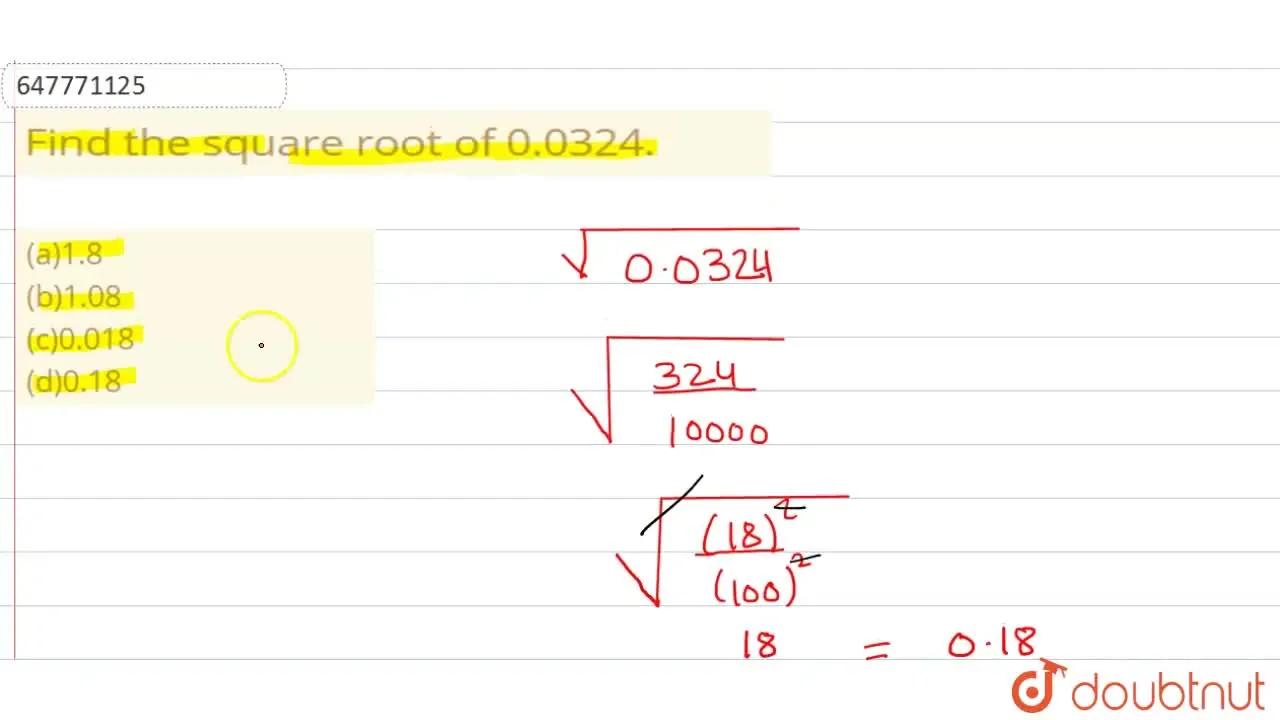 647771125
Find the square root of 0.0324.
(a)1.8
(b)1.08
(c)0.018
(d)0.18
√0.0324
√324
10000
√(18)²
(100)²
18 = 0.18
doubtnut